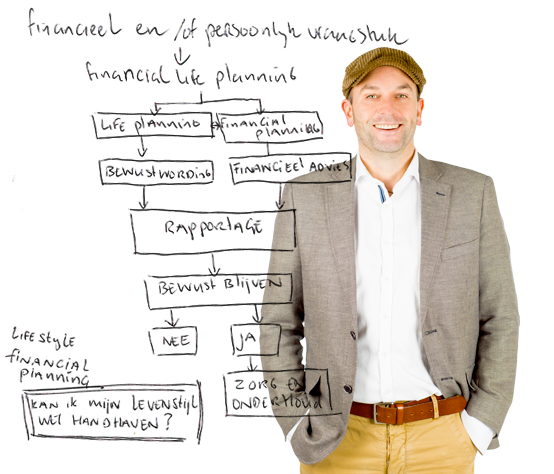 financieel en/of persoonlijk vraagstuk
financial life planning
LIFE planning
financial
planning
BEWUSTWORDING
FINANCIEEL ADVIES
RAPPORTAGE
BEWUST BLIJVEN
NEE
JA
ZORG EN
ONDERHOUD
LIFESTYLE
FINANCIAL
PLANNING
KAN IK MIJN LEVENSTIJL
WEL HANDHAVEN?